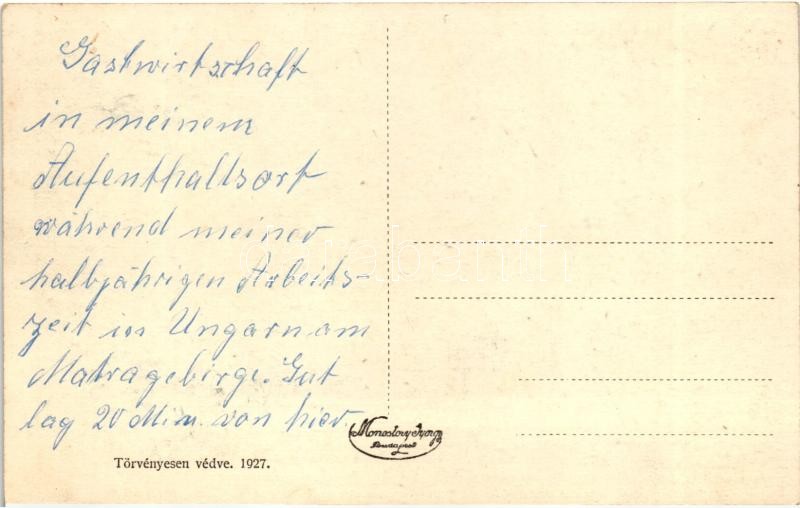 Gastwirtschaft
in meinem
Aufenthaltsort
während meiner
halbjährigen Arbeits-
zeit in Ungarn am
Matragebirge. Gut
lag 20 Min. von hier.
Monostory György
Budapest
Törvényesen védve. 1927.
darabanth